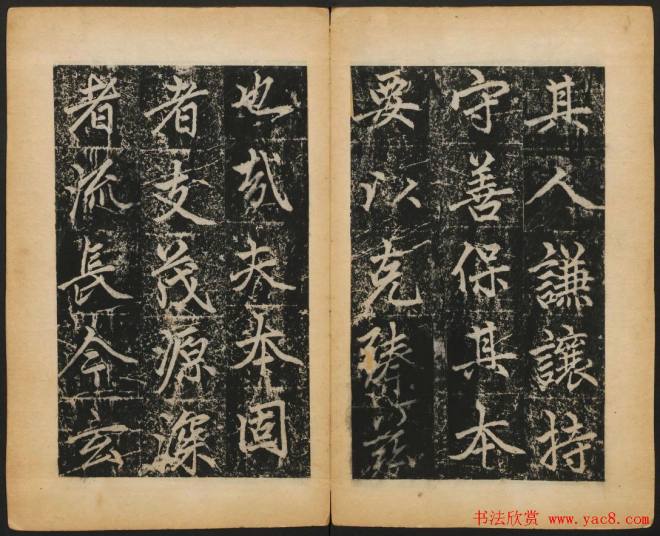 其人謙讓持
守善保其本
要以克
也哉夫本固
者支茂源深
者流長今玄
书法欣赏 www.yac8.com